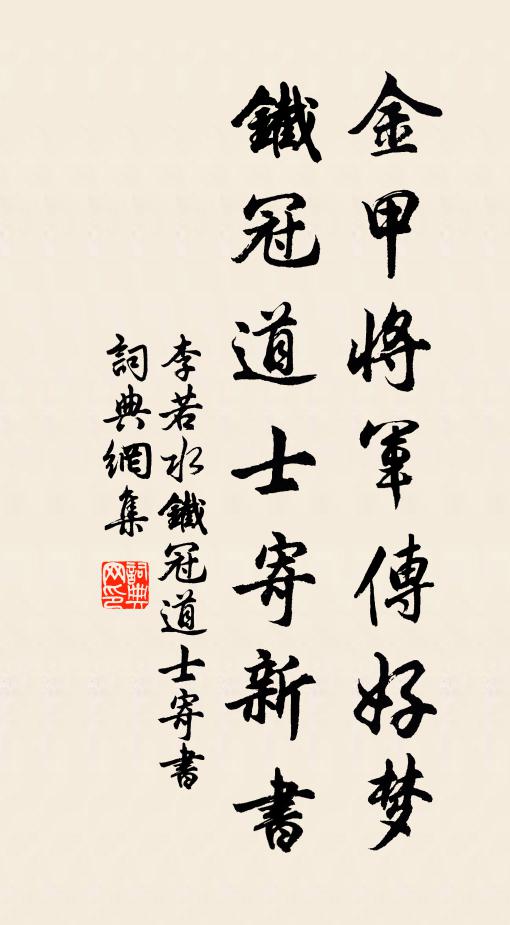 金甲將軍傳好梦
鐵冠道士寄新書
李若水鐵冠道士寄書
詞典網集
詞典网印